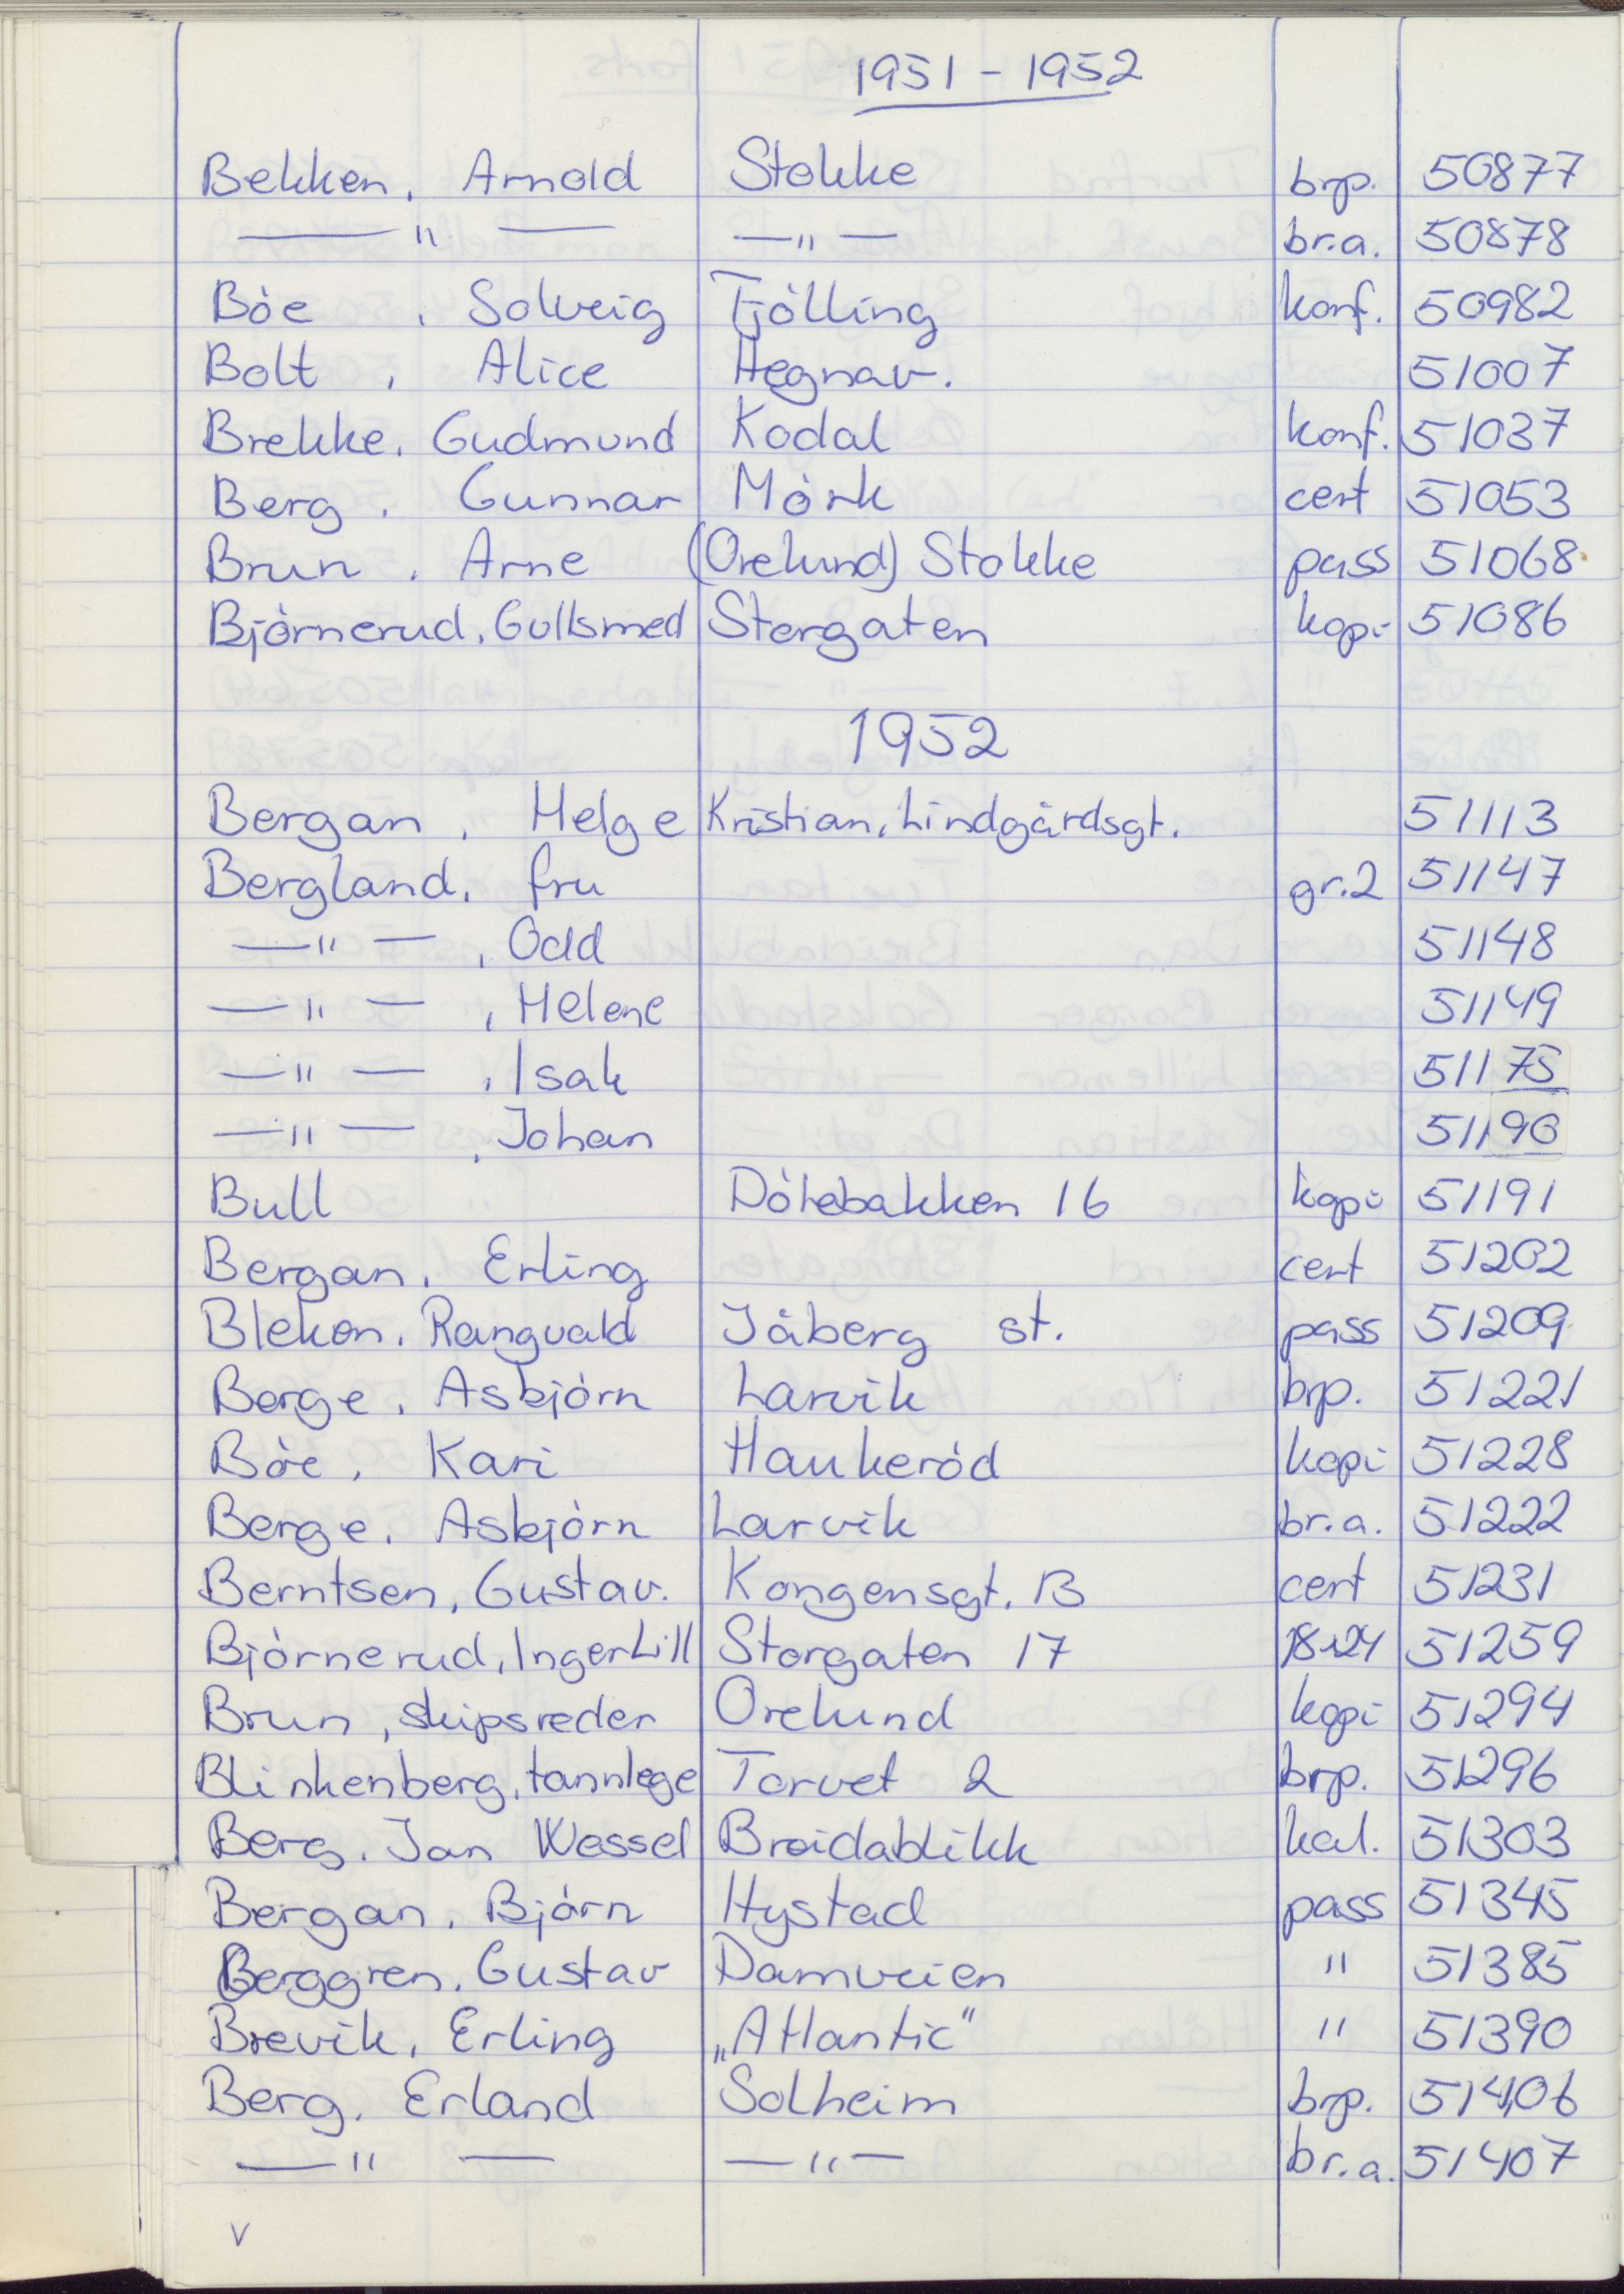 1951 - 1952
Bekken, Arnold Stokke brp. 50877
—"— —"— br.a. 50878
Bòe, Solveig Tjòlling konf. 50982
Bolt, Alice Hegnav. 51007
Brekke, Gudmund Kodal konf. 51037
Berg, Gunnar Mòrk cert 51053
Brun, Arne (Orelund) Stokke pass 51068
Bjòrnerud, Gullsmed Storgaten kopi 51086
1952
Bergan, Helge Kristian, Lindgårdsgt. 51113
Bergland, fru gr.2 51147
—"—, Odd 51148
—"—, Helene 51149
—"—, Isak 51175
—"—, Johan 51190
Bull Dòlebakken 16 kopi 51191
Bergan, Erling cert 51202
Blekon, Rangvald Jåberg st. pass 51209
Berge, Asbjòrn Larvik brp. 51221
Bòe, Kari Haukeròd kopi 51228
Berge, Asbjòrn Larvik br.a. 51222
Berntsen, Gustav. Kongensgt. 13 cert 51231
Bjòrnerud, Inger Lill Storgaten 17 18x24 51259
Brun, skipsreder Orelund kopi 51294
Blinkenberg, tannlege Torvet 2 brp. 51296
Berg, Jan Wessel Breidablikk kal. 51303
Bergan, Bjòrn Hystad pass 51345
Berggren, Gustav Damveien " 51385
Brevik, Erling „Atlantic" " 51390
Berg, Erland Solheim brp. 51406
—"— —"— br.a. 51407
v